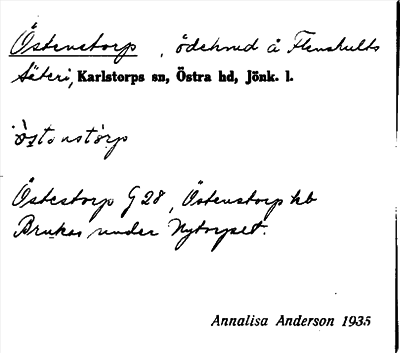 Östenstorp, ödehmd å Flenshults
säteri, Karlstorps sn, Östra hd, Jönk. l.
östonstorp
Östestorp G 28, Östenstorp kb
Brukas under Nytorpet.
Annalisa Anderson 1935